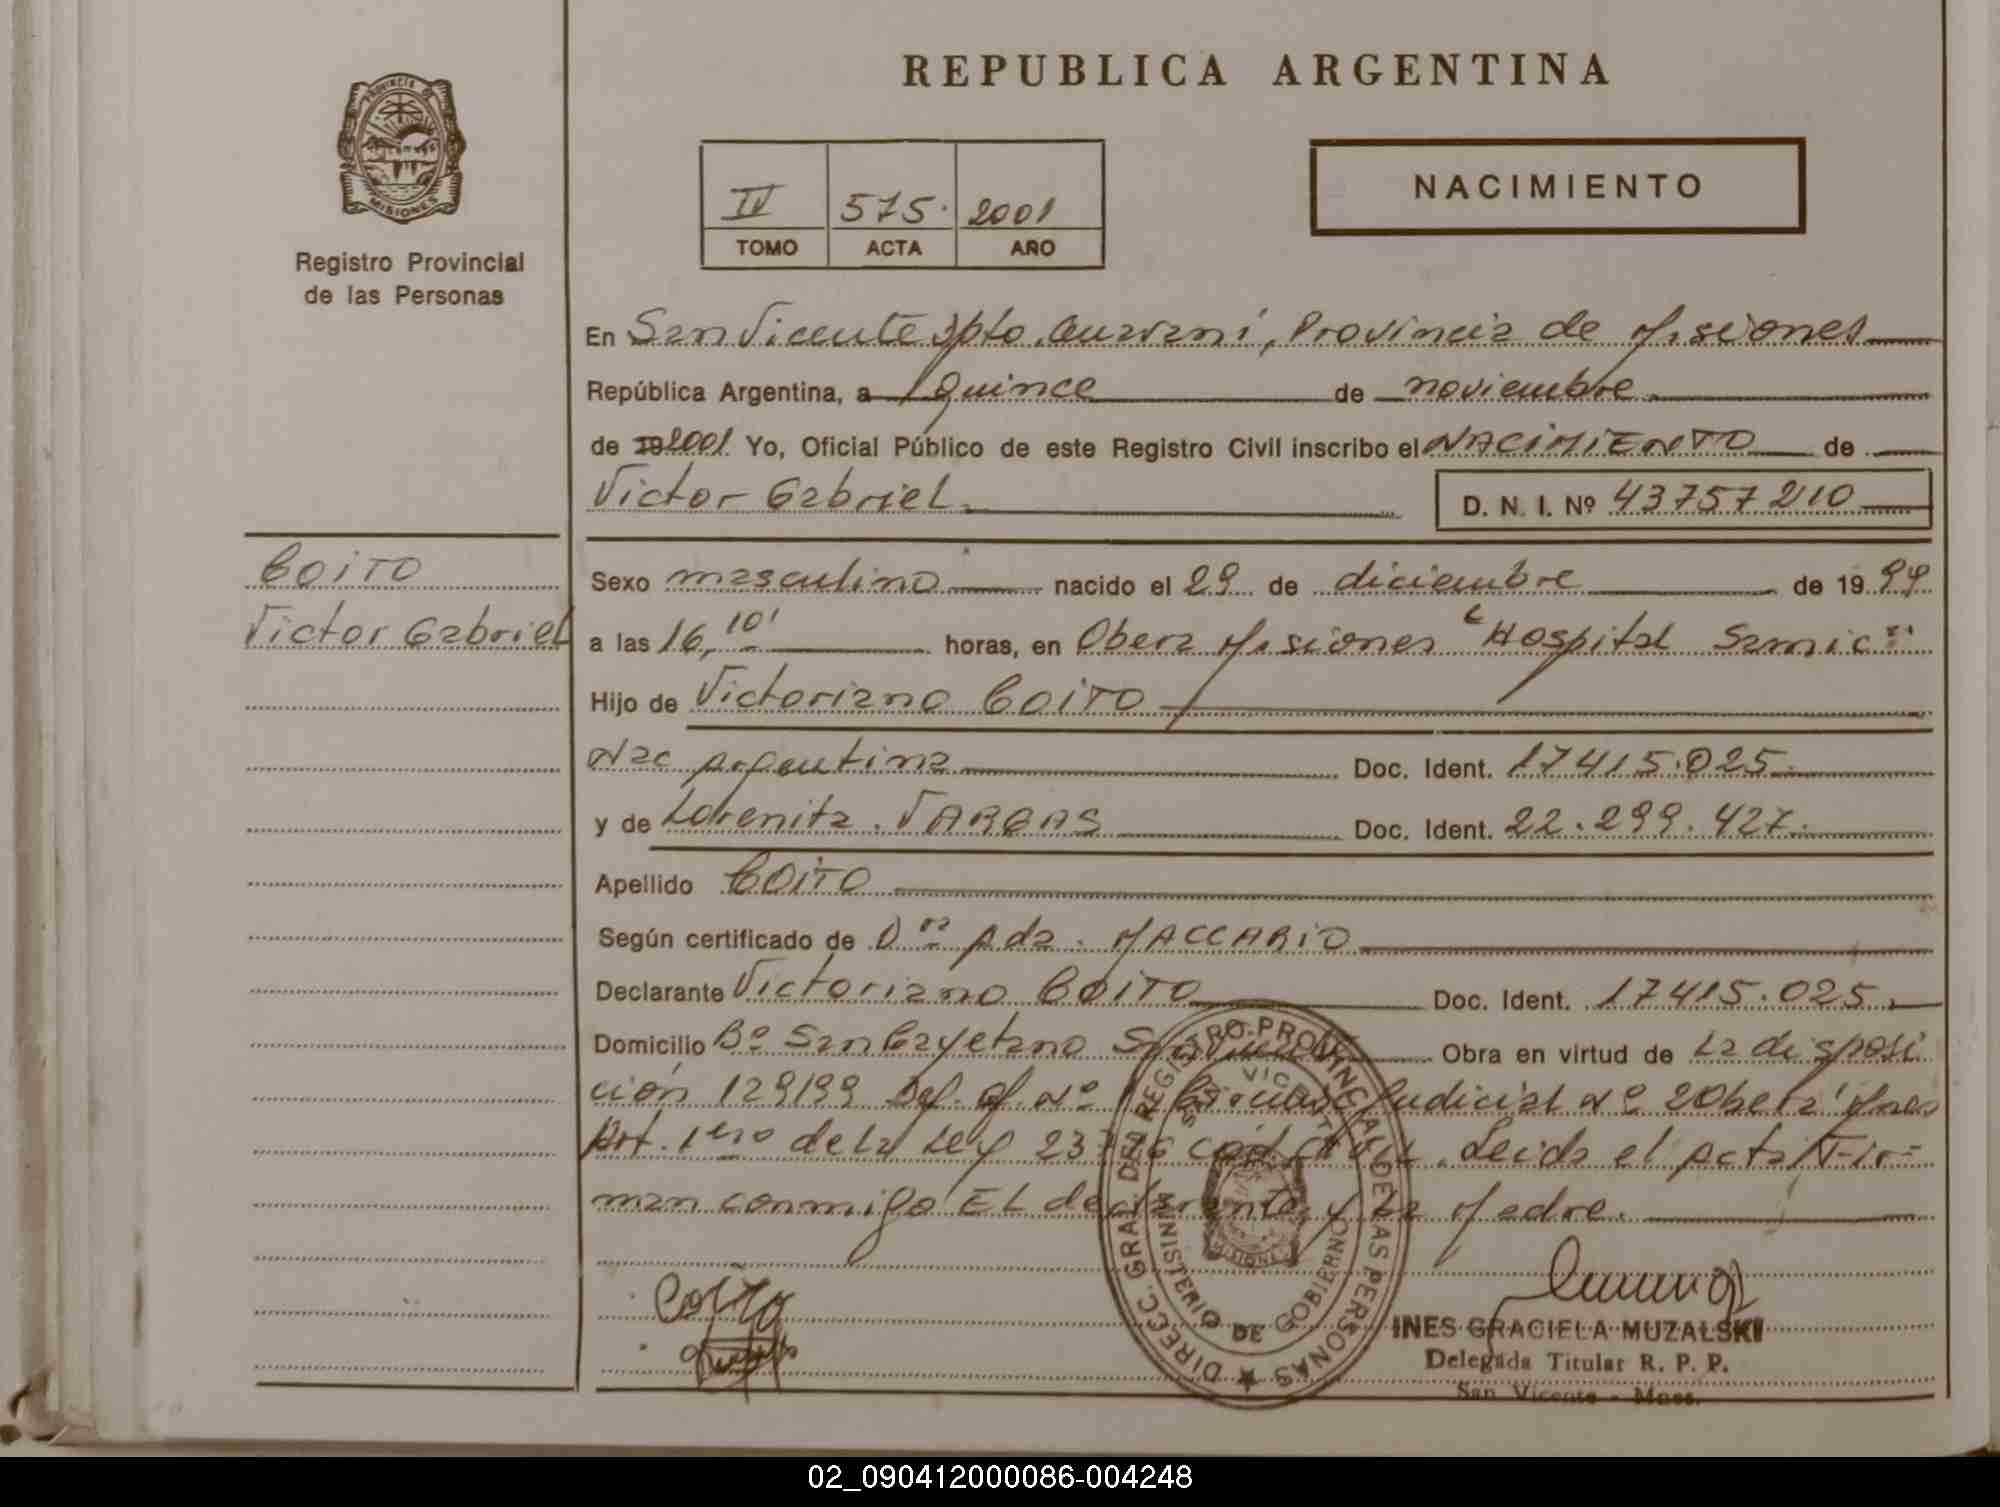 REPUBLICA ARGENTINA
PROVINCIA DE
MISIONES
Registro Provincial
de las Personas
IV 575. 2001
TOMO ACTA AÑO
NACIMIENTO
En San Vicente Dpto. Guaraní, Provincia de Misiones
República Argentina, a quince de noviembre
de 19 2001 Yo, Oficial Público de este Registro Civil inscribo el NACIMIENTO de
Victor Gabriel D. N. I. Nº 43757210
COITO
Victor Gabriel
Sexo masculino nacido el 29 de diciembre de 19 94
a las 16,10' horas, en Obera Misiones "Hospital Samic"
Hijo de Victoriano COITO
Nac Argentina Doc. Ident. 17415.025.
y de Lorenita. VARGAS Doc. Ident. 22.299.427.
Apellido COITO
Según certificado de Dra Ada. MACCARIO
Declarante Victoriano COITO Doc. Ident. 17415.025.
Domicilio Bº San Cayetano San Vicente Obra en virtud de La disposi
ción 129199 Def. of. Nº 1 Judicial Nº 2 Obera' Mnes
Art. 1ero de La Ley 23 Leida el Acta Fir=
man conmigo EL declarante y La Madre.
Coito
DIRECC. GRAL. DEL REGISTRO PROVINCIAL DE LAS PERSONAS
SAN VICENTE
MINISTERIO DE GOBIERNO
MISIONES
INES GRACIELA MUZALSKI
Delegada Titular R. P. P.
San Vicente - Mnes.
02_090412000086-004248